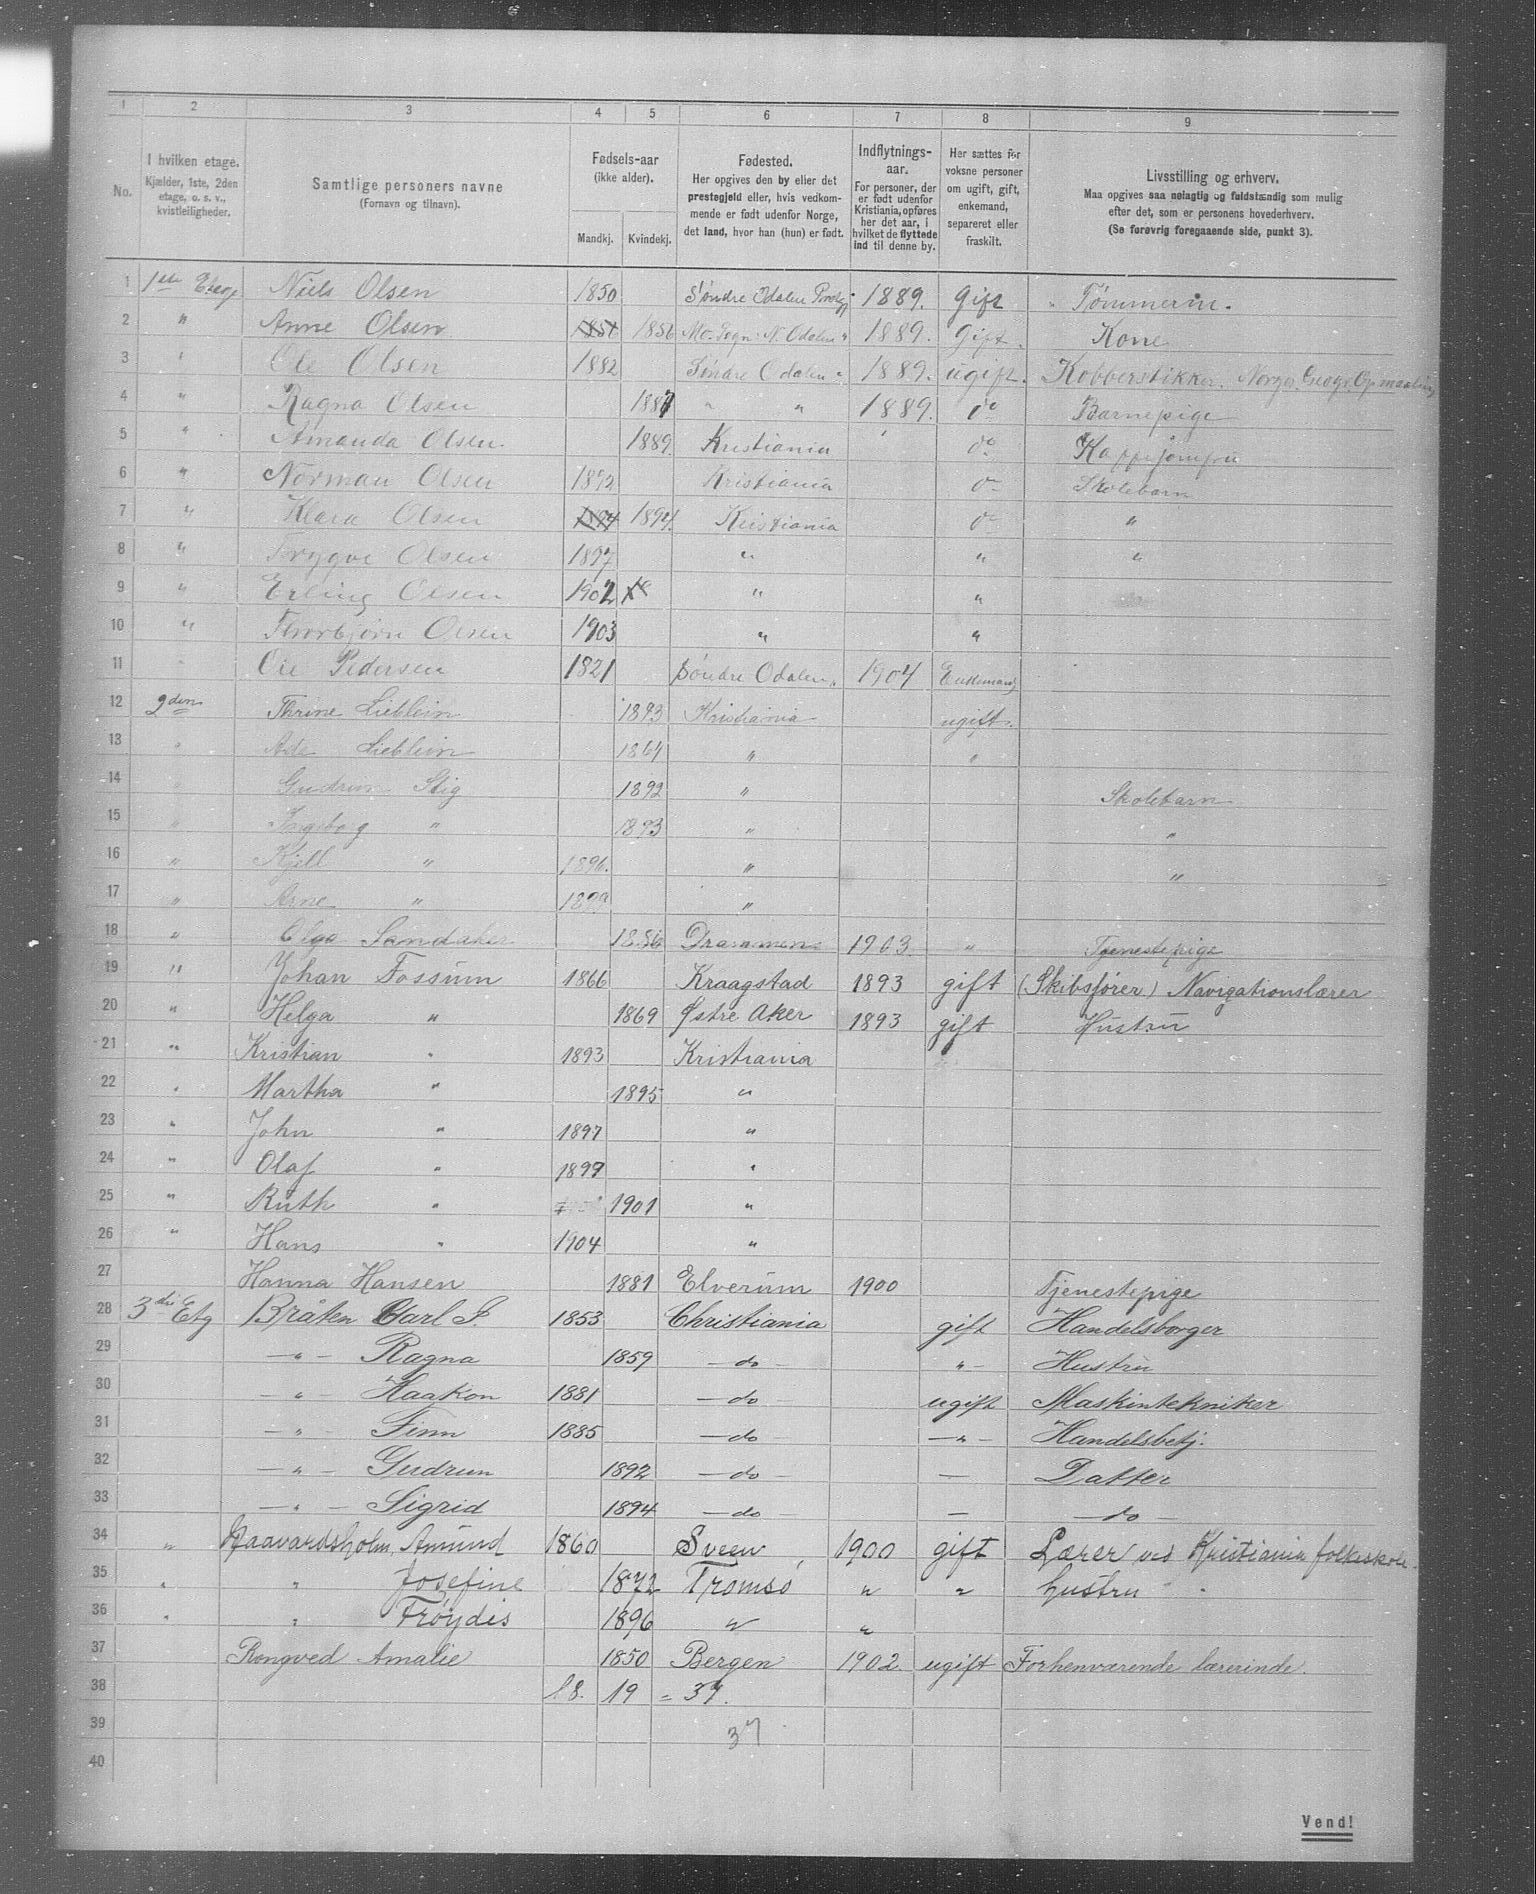 1 2 3 4 5 6 7 8 9
No.
I hvilken etage.
Kjælder, 1ste, 2den
etage, o. s. v.,
kvistleiligheder.
Samtlige personers navne
(Fornavn og tilnavn).
Fødsels-aar
(ikke alder).
Mandkj. Kvindekj.
Fødested.
Her opgives den by eller det
prestegjeld eller, hvis vedkom-
mende er født udenfor Norge,
det land, hvor han (hun) er født.
Indflytnings-
aar.
For personer, der
er født udenfor
Kristiania, opføres
her det aar, i
hvilket de flyttede
ind til denne by.
Her sættes for
voksne personer
om ugift, gift,
enkemand,
separeret eller
fraskilt.
Livsstilling og erhverv.
Maa opgives saa nøiagtig og fuldstændig som mulig
efter det, som er personens hovederhverv.
(Se forøvrig foregaaende side, punkt 3).
1 1ste Etage Niels Olsen 1850 Søndre Odalen 1889. Gift Tømmerm.
2 " Anne Olsen 1856 1856 Mo Sogn. N. Odalen " 1889. Gift. Kone
3 " Ole Olsen 1882 Søndre Odalen " 1889. ugift. Kobberstikker. Norges Geogr. Opmaaling
4 " Ragna Olsen 1887 " " 1889. do Barnepige
5 " Amanda Olsen. 1889. Kristiania do
6 " Norman Olsen 1892 Kristiania do Skolebarn
7 " Klara Olsen 1894 1894. Kristiania do "
8 " Trygve Olsen 1897 " " "
9 " Erling Olsen 1902 " "
10 " Thorbjørn Olsen 1903 " "
11 " Ole Pedersen 1821 Søndre Odalen. 1904 Enkemand
12 2den Thrine Lieblein 1893 Kristiania ugift.
13 " Lieblein 1864 " "
14 " Gudrun Stig 1892 " Skolebarn
15 " Ingeborg " 1893 " "
16 " Kjell " 1896. " "
17 " Arne " 1899 "
18 " Olga Sandaker 1886 Drammen 1903. " Tjenestepige
19 " Johan Fossum 1866 Kraagstad 1893 gift (Skibsfører) Navigationslærer
20 " Helga " 1869 Østre Aker 1893 gift Hustru
21 " Kristian " 1893 Kristiania
22 " Martha " 1895 "
23 " John " 1897 "
24 " Olaf " 1899 "
25 " Ruth " 1901 "
26 " Hans " 1904 "
27 Hanna Hansen 1881 Elverum 1900 Tjenestepige
28 3die Etg Bråten Carl J. 1853 Christiania gift Handelsborger
29 — " — Ragna 1859 — do — " — Hustru
30 — " — Haakon 1881 — do — ugift Maskintekniker
31 — " — Finn 1885 — do — — " — Handelsbetj.
32 — " — Gudrun 1892 — do — — Datter
33 — " — Sigrid 1894 — do — — — do —
34 " Haavardsholm, Amund 1860 Sveen, 1900 gift Lærer ved Kristiania folkeskole.
35 " " Josefine 1872 Tromsø " " Hustru
36 " " Frøydis 1896 " "
37 Rongved Amalie 1850 Bergen 1902. ugift Forhenværende lærerinde.
38 18. 19 = 37.
39 37
40
Vend!